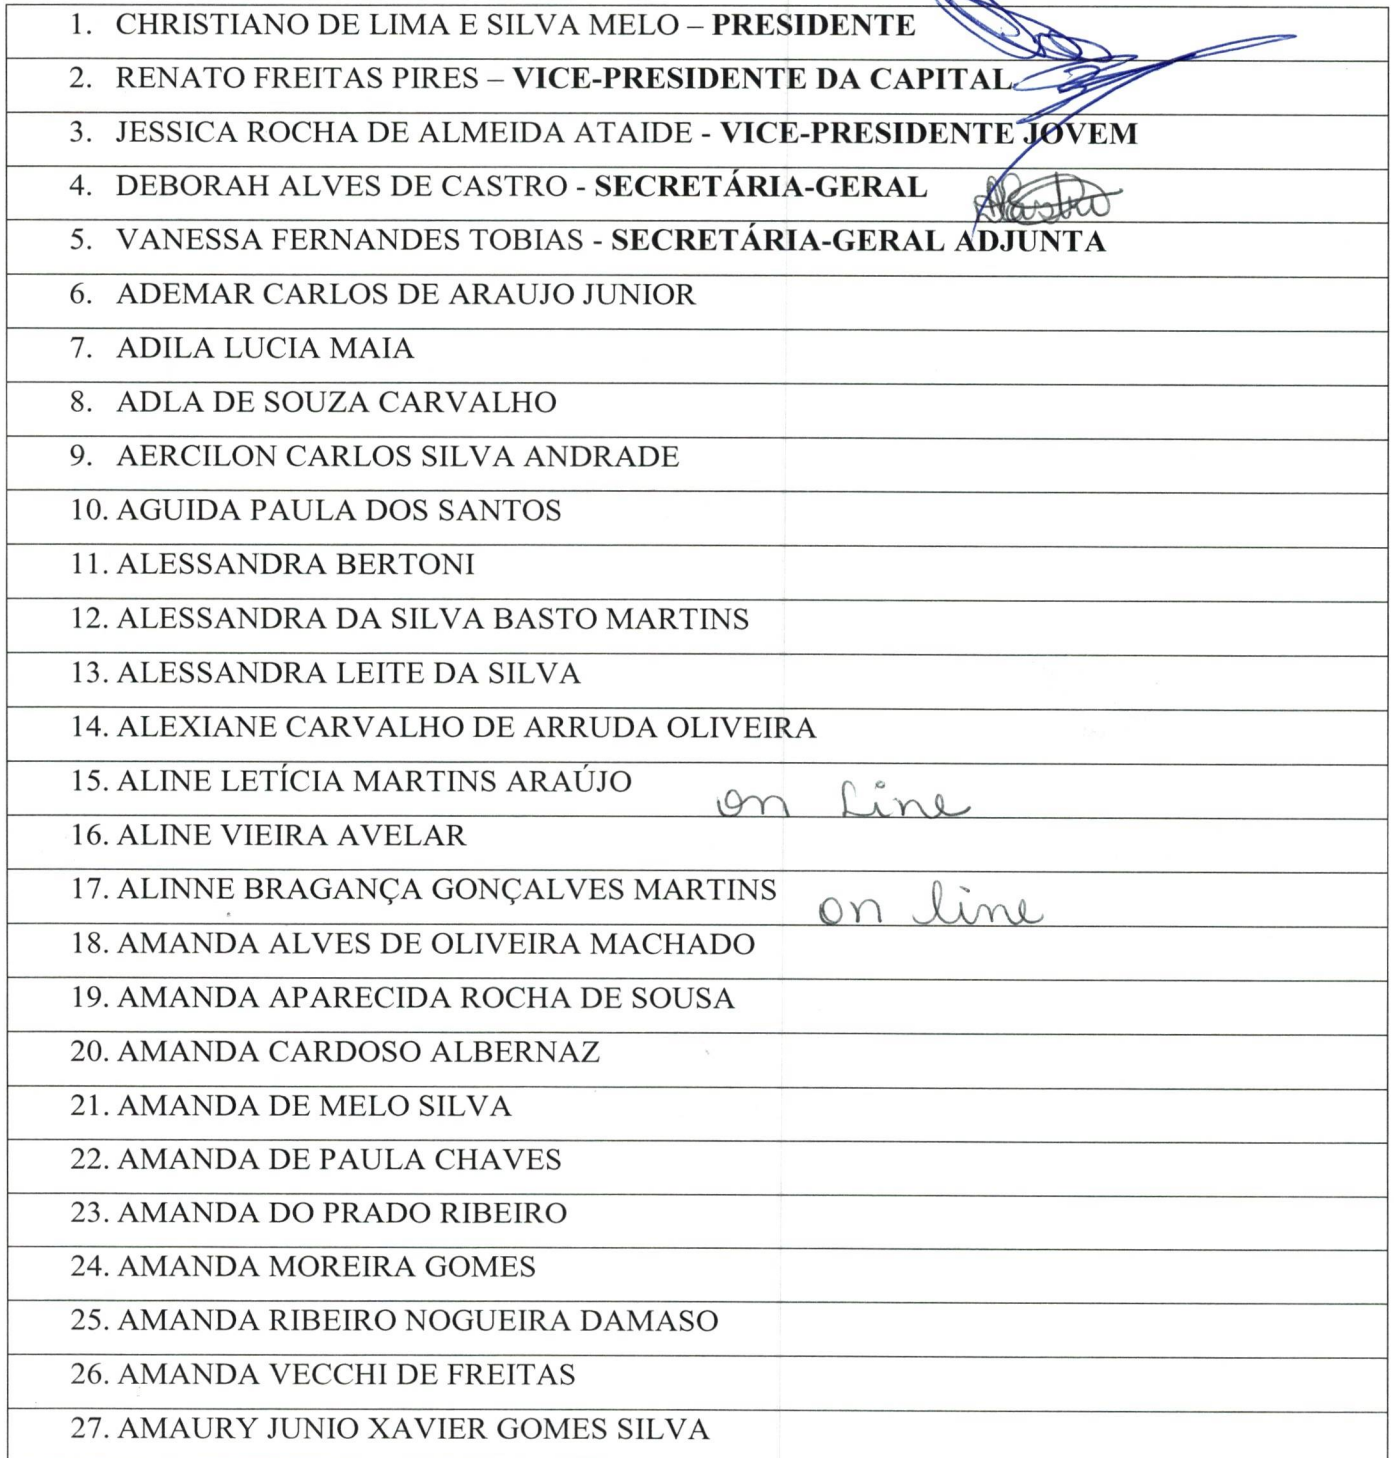 1. CHRISTIANO DE LIMA E SILVA MELO – PRESIDENTE
2. RENATO FREITAS PIRES – VICE-PRESIDENTE DA CAPITAL
3. JESSICA ROCHA DE ALMEIDA ATAIDE - VICE-PRESIDENTE JOVEM
4. DEBORAH ALVES DE CASTRO - SECRETÁRIA-GERAL
5. VANESSA FERNANDES TOBIAS - SECRETÁRIA-GERAL ADJUNTA
6. ADEMAR CARLOS DE ARAUJO JUNIOR
7. ADILA LUCIA MAIA
8. ADLA DE SOUZA CARVALHO
9. AERCILON CARLOS SILVA ANDRADE
10. AGUIDA PAULA DOS SANTOS
11. ALESSANDRA BERTONI
12. ALESSANDRA DA SILVA BASTO MARTINS
13. ALESSANDRA LEITE DA SILVA
14. ALEXIANE CARVALHO DE ARRUDA OLIVEIRA
15. ALINE LETÍCIA MARTINS ARAÚJO on Line
16. ALINE VIEIRA AVELAR
17. ALINNE BRAGANÇA GONÇALVES MARTINS on line
18. AMANDA ALVES DE OLIVEIRA MACHADO
19. AMANDA APARECIDA ROCHA DE SOUSA
20. AMANDA CARDOSO ALBERNAZ
21. AMANDA DE MELO SILVA
22. AMANDA DE PAULA CHAVES
23. AMANDA DO PRADO RIBEIRO
24. AMANDA MOREIRA GOMES
25. AMANDA RIBEIRO NOGUEIRA DAMASO
26. AMANDA VECCHI DE FREITAS
27. AMAURY JUNIO XAVIER GOMES SILVA